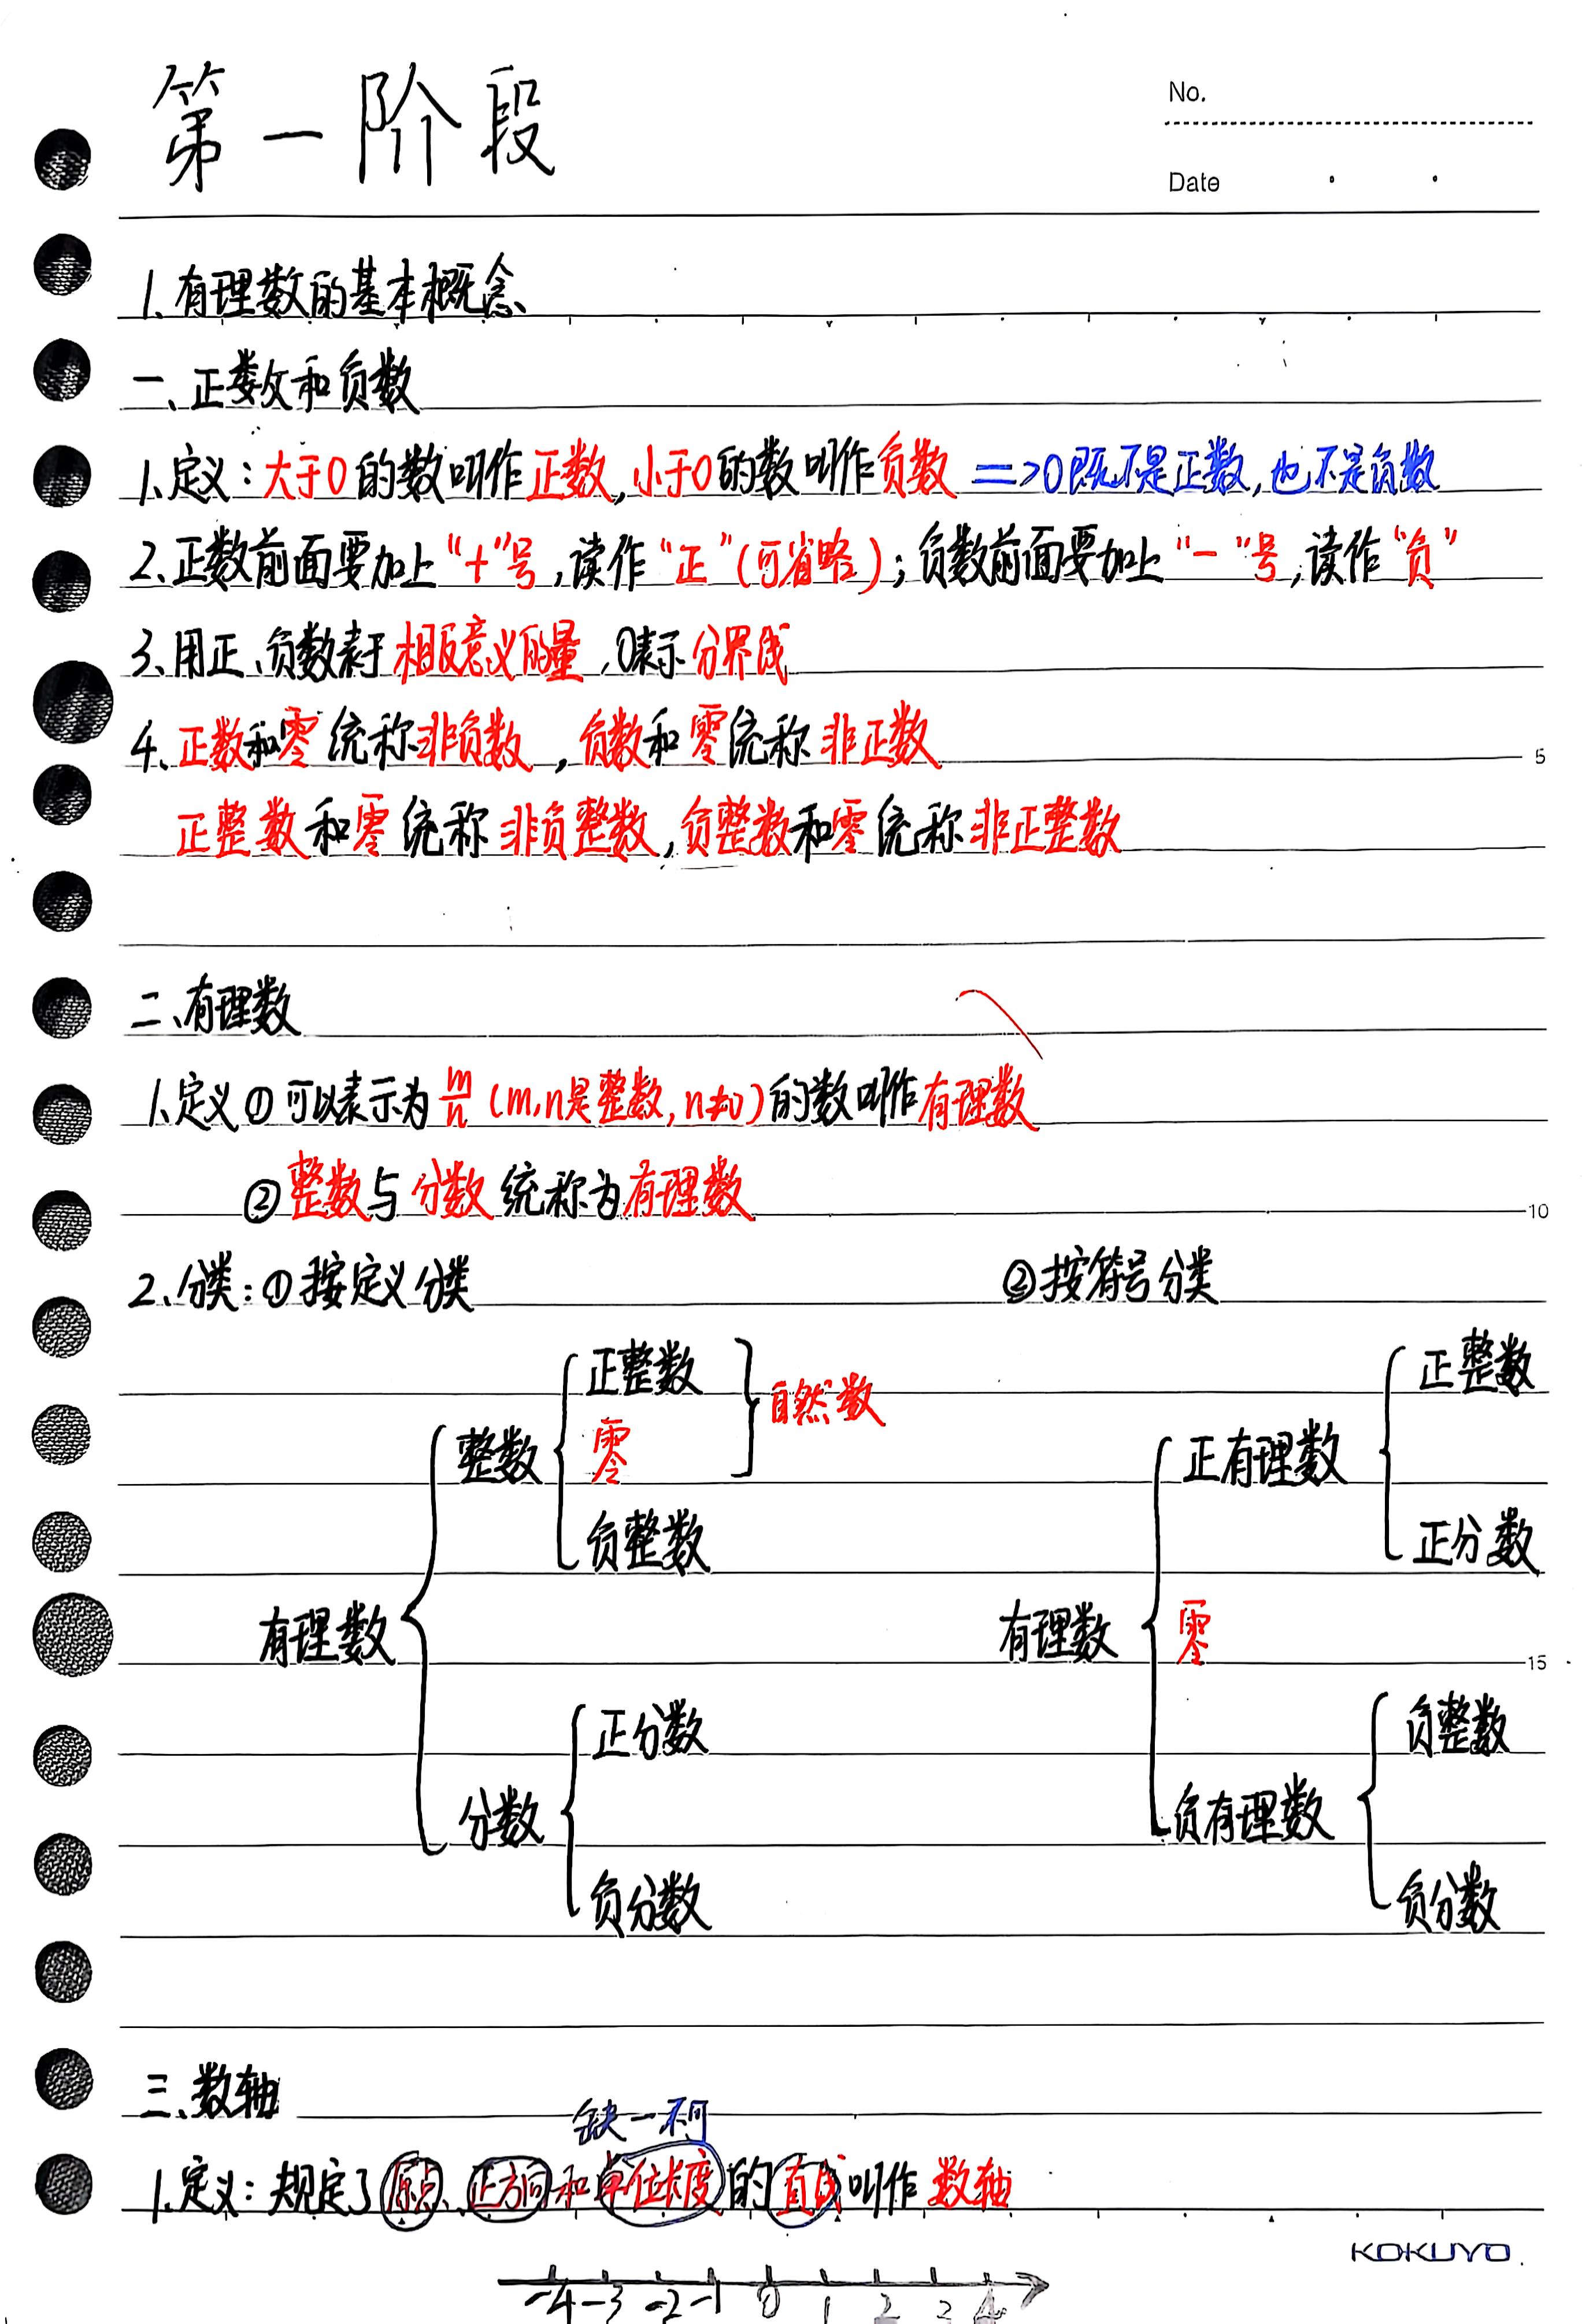 第一阶段
No.
Date
1.有理数的基本概念
一、正数和负数
1.定义:大于0的数叫作正数,小于0的数叫作负数 =>0既不是正数,也不是负数
2.正数前面要加上“+”号,读作“正”(可省略);负数前面要加上“-”号,读作“负”
3.用正、负数表示相反意义的量,0表示分界线
4.正数和零统称非负数,负数和零统称非正数
5
正整数和零统称非负整数,负整数和零统称非正整数
二、有理数
1.定义①可以表示为m/n(m,n是整数,n≠0)的数叫作有理数
②整数与分数统称为有理数
10
2.分类:①按定义分类 ②按符号分类
正整数 正整数
自然数
整数 零 正有理数
负整数 正分数
有理数 有理数 零
15
正分数 负整数
分数 负有理数
负分数 负分数
三、数轴
缺一不可
1.定义:规定了原点、正方向和单位长度的直线叫作数轴
KOKUYO
-4 -3 -2 -1 0 1 2 3 4